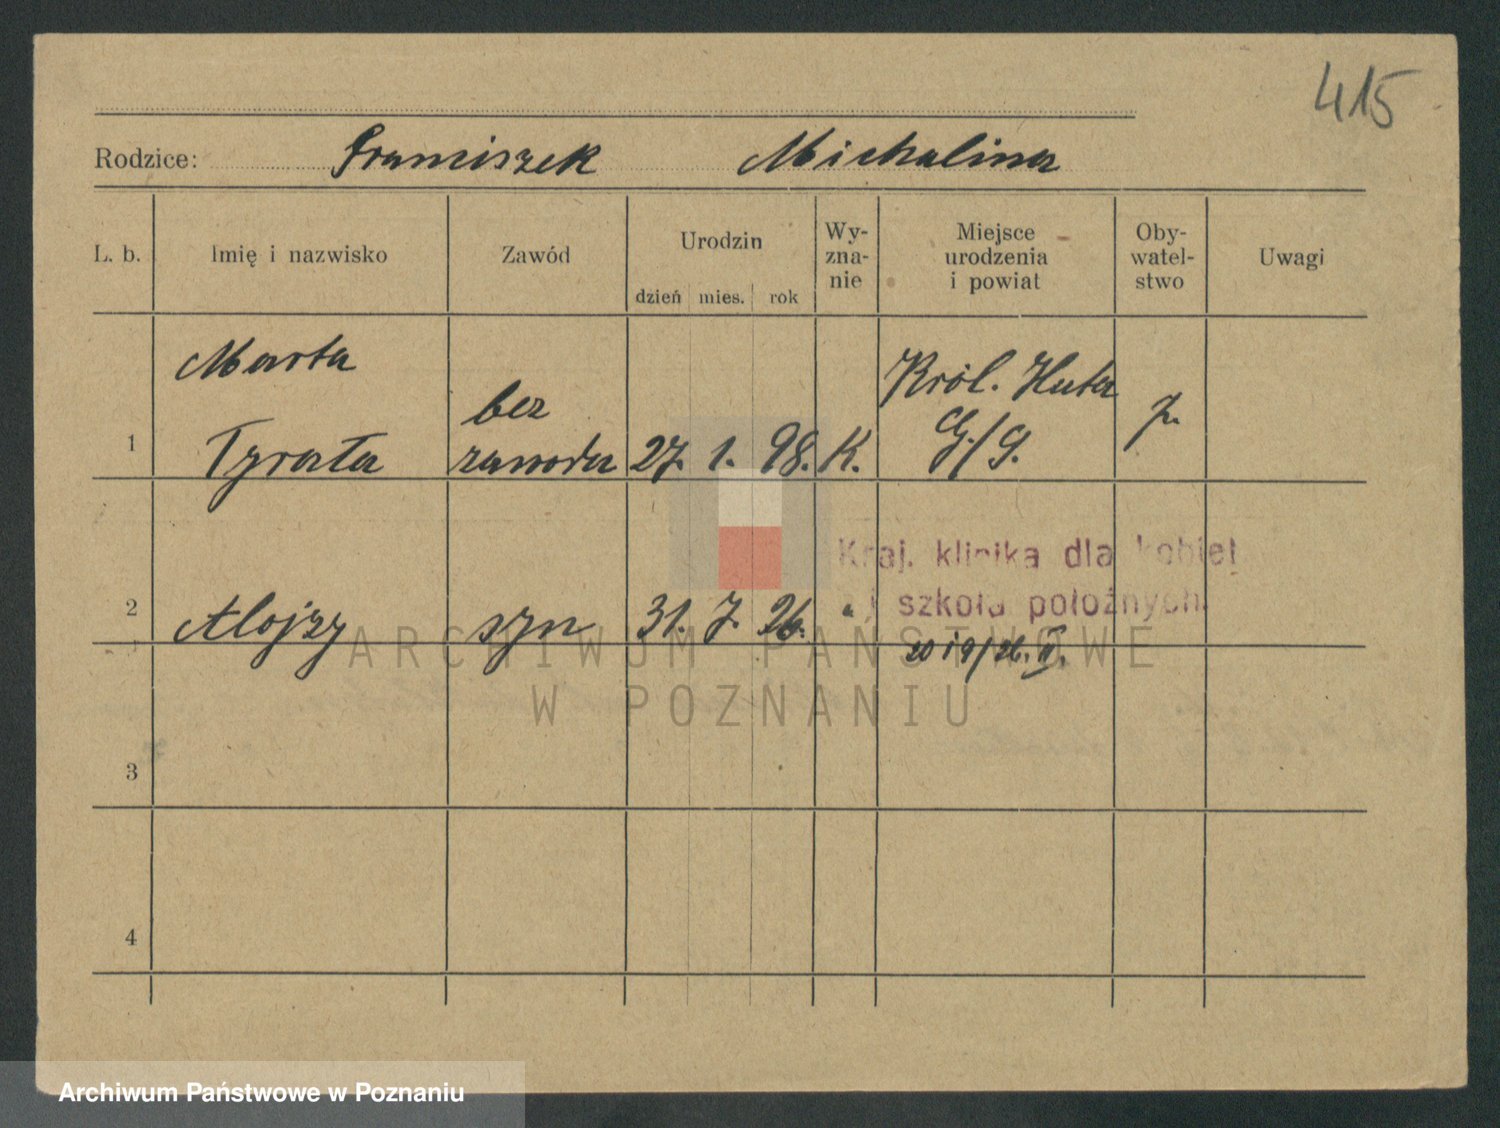 415
Rodzice: Franciszek Michalina
L. b. Imię i nazwisko Zawód Urodzin dzień mies. rok Wy-zna-nie Miejsce urodzenia i powiat Oby-watel-stwo Uwagi
Marta
bez
Król. Huta
1 Tyrała zawodu 27. 1. 98. K. G./S. p.
Kraj. klinika dla kobiet
i szkoła położnych
2 Alojzy syn 31. 7. 26. "
ARCHIWUM PAŃSTWOWE
W POZNANIU
3
4
Archiwum Państwowe w Poznaniu